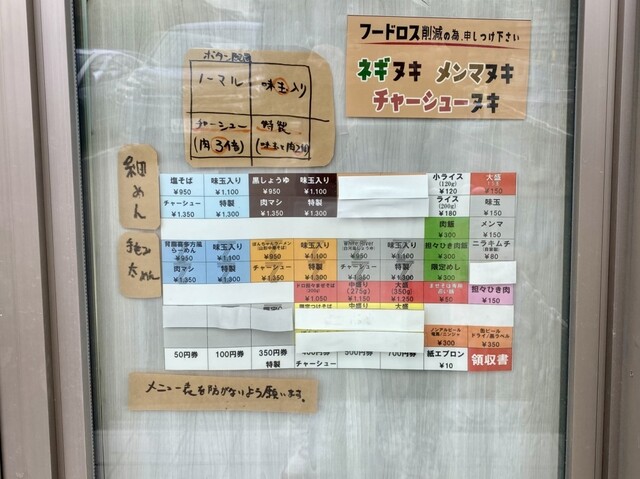 フードロス削減の為、申しつけ下さい
ネギヌキ メンマヌキ
チャーシューヌキ
ボタン配置
ノーマル 味玉入り
チャーシュー 特製
(肉3倍) (味玉と肉3倍)
細めん
塩そば 味玉入り 黒しょうゆ 味玉入り 小ライス(120g) 大盛
¥950 ¥1,100 ¥950 ¥1,100 ¥120 ¥150
チャーシュー 特製 肉マシ 特製 ライス(200g) 味玉
¥1,350 ¥1,300 ¥1,350 ¥1,300 ¥180 ¥150
肉飯 メンマ
¥300 ¥150
手もみ太めん
味玉入り 味玉入り 担々ひき肉飯 ニラキムチ
¥950 ¥1,100 ¥950 ¥1,100 ¥300 ¥80
肉マシ 特製 チャーシュー 特製 チャーシュー 特製 限定めし
¥1,350 ¥1,300 ¥1,350 ¥1,300 ¥1,350 ¥1,300 ¥300
中盛り(275g) 大盛(350g) 担々ひき肉
¥1,050 ¥1,150 ¥1,250 ¥50 ¥150
ノンアルビール 缶ビール
¥300 ¥350
50円券 100円券 350円券 400円券 500円券 700円券 紙エプロン 領収書
特製 チャーシュー ¥10
メニュー表を防がないよう願います。